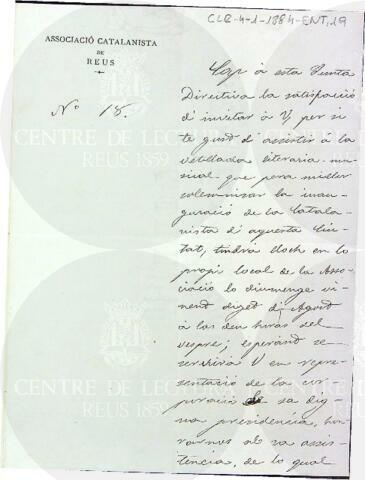 CLR-4-1-1884-ENT,19
ASSOCIACIÓ CATALANISTA
DE
REUS
Nº 18.
Cap á esta Junta
Directiva la satisfacció
d'invitar á V, per si
te gust d'assistir á la
vetllada literaria-mu-
sical que pera millor
solemnisar la inau-
guració de la Catala-
nista d'aquesta Ciu-
tat, tindrá lloch en lo
propi local de la Asso-
ciació lo diumenge vi-
nent diget d'Agost
á las deu horas del
vespre; esperant se
servirá V en repre-
sentació de la cor-
poració de sa dig-
na presidencia, hon-
rarnos ab sa assis-
tencia, de lo qual
CENTRE DE LECTURA
REUS 1859
CENTRE DE LECTURA
REUS 1859